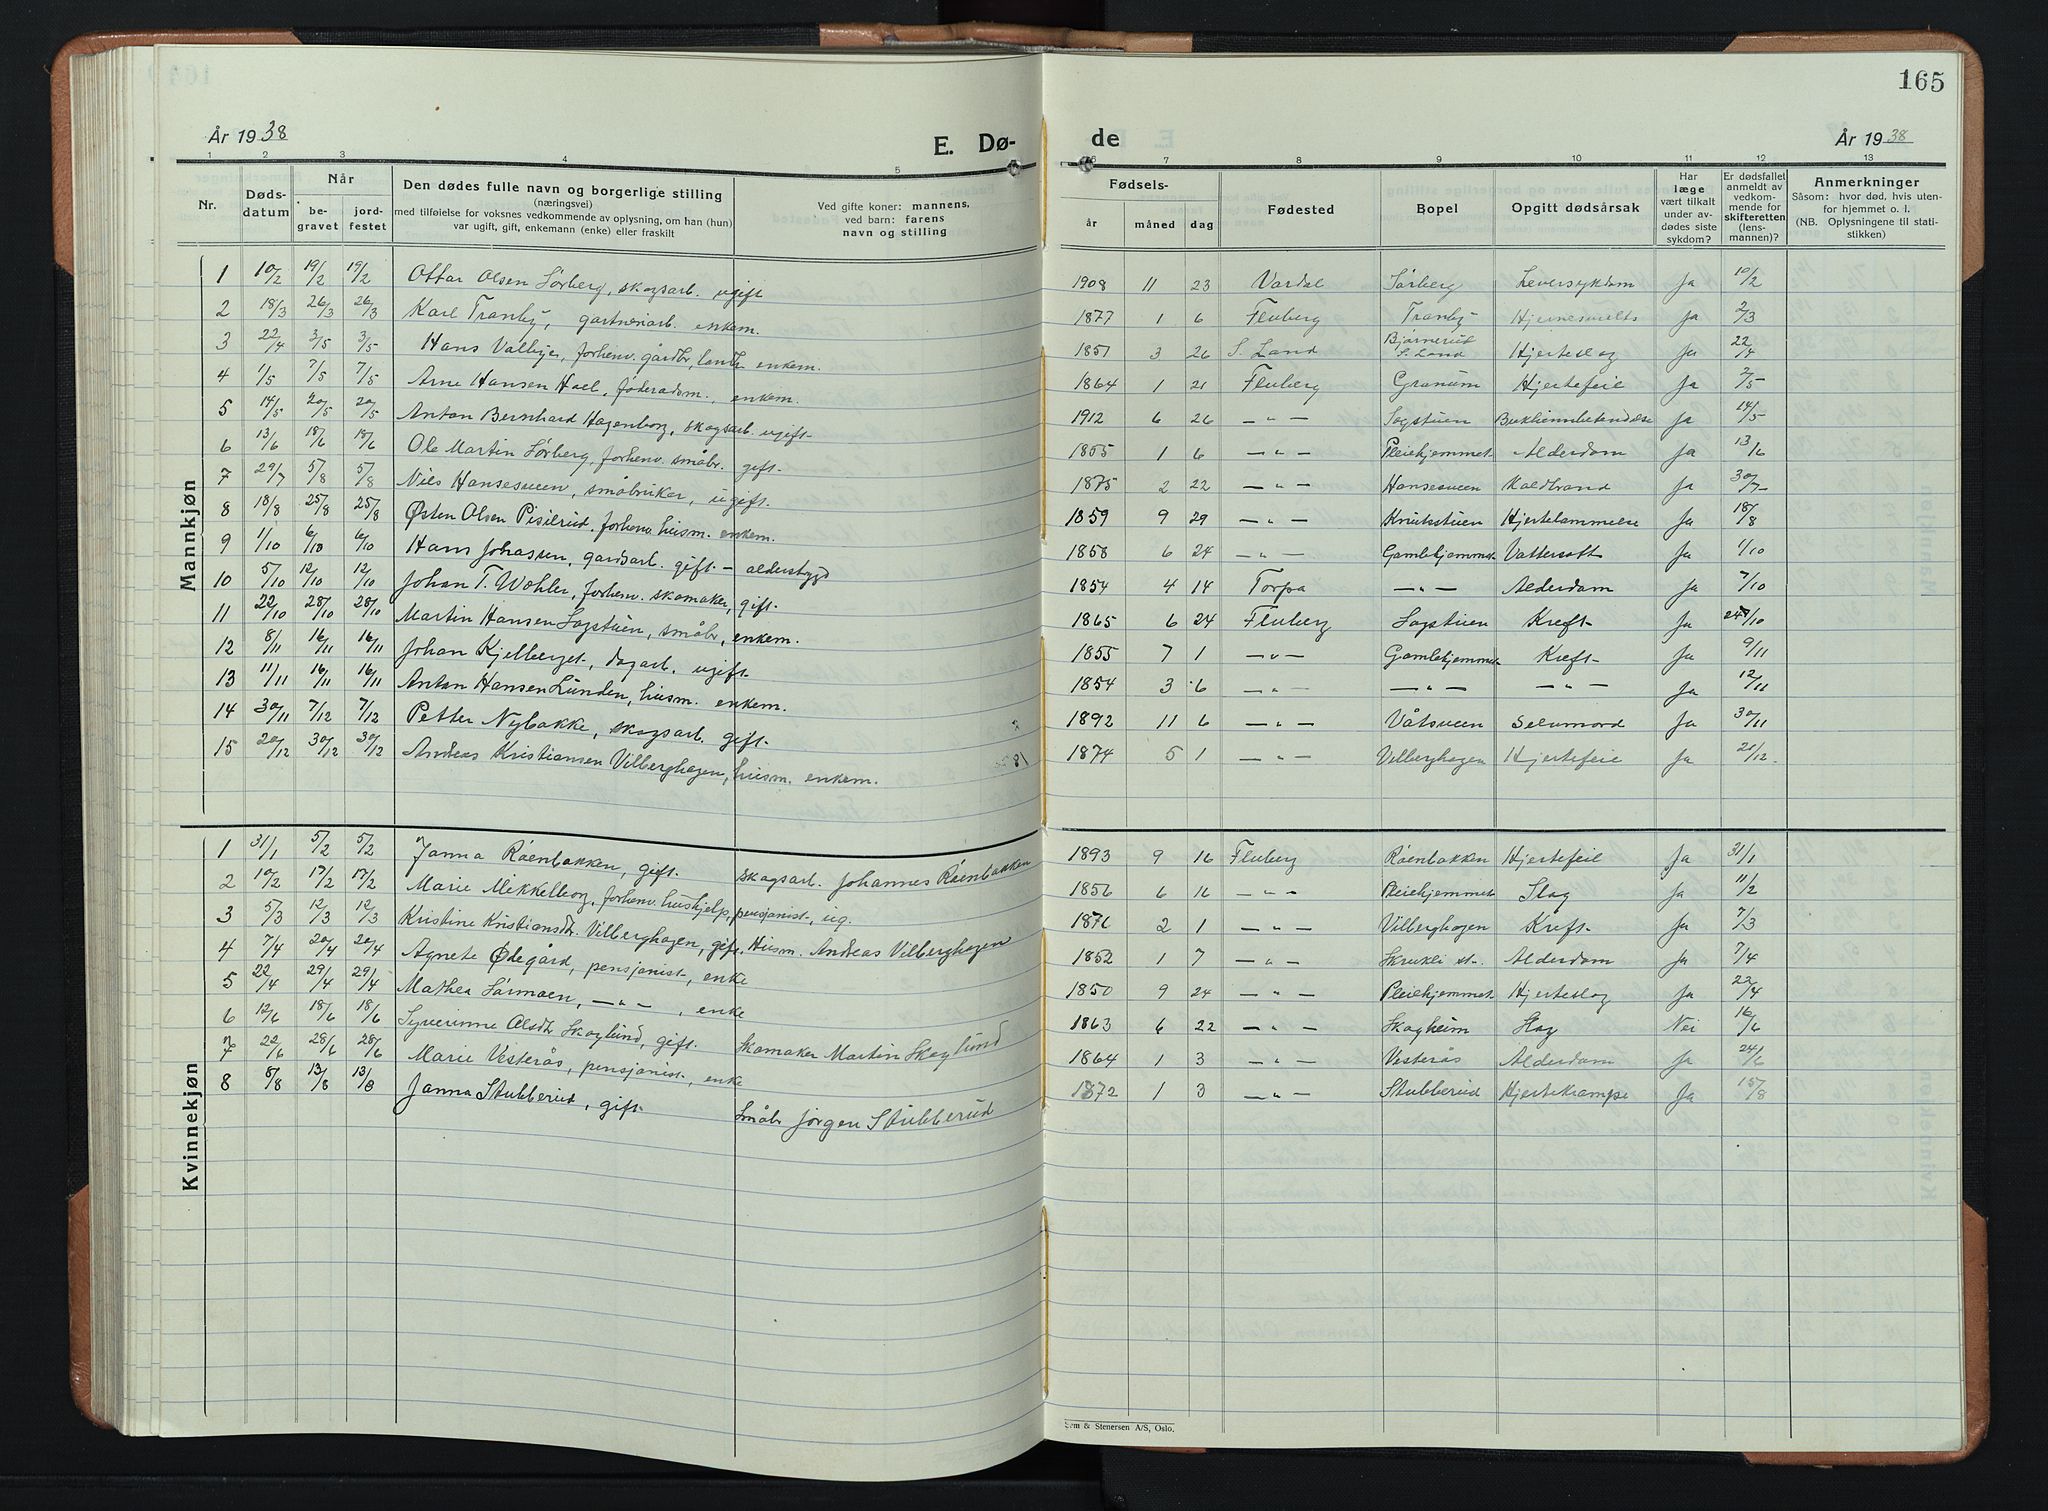 165
År 1938
E. Dø-
de
År 1938
1 2 3 4 5 6 7 8 9 10 11 12 13
Nr.
Døds-
datum
Når
be-
gravet
jord-
festet
Den dødes fulle navn og borgerlige stilling
(næringsvei)
med tilføielse for voksnes vedkommende av oplysning, om han (hun)
var ugift, gift, enkemann (enke) eller fraskilt
Ved gifte koner: mannens,
ved barn: farens
navn og stilling
Fødsels-
år måned dag
Fødested
Bopel
Opgitt dødsårsak
Har
læge
vært tilkalt
under av-
dødes siste
sykdom?
Er dødsfallet
anmeldt av
vedkom-
mende for
skifteretten
(lens-
mannen)?
Anmerkninger
Såsom: hvor død, hvis uten-
for hjemmet o. l.
(NB. Oplysningene til stati-
stikken)
Mannkjøn
1 10/2 19/2 19/2 Ottar Olsen Sørberg, skogsarb. ugift 1908 11 23 Vardal Sørberg Leversykdom Ja 10/2
2 18/3 26/3 26/3 Karl Tranby, gartneriarb. enkem. 1877 1 6 Fluberg Tranby Ja 2/3
3 22/4 3/5 3/5 Hans Valbye, forhenv. gårdbr, enkem. 1851 3 26 S. Land Bjørnerud S. Land Hjerteslag Ja 22/4
4 1/5 7/5 7/5 Arne Hansen Hoel, føderådsm., enkem. 1864 1 21 Fluberg Granum Hjertefeil Ja 2/5
5 14/5 20/5 20/5 Anton Bernhard Hagenborg, skogsarb. ugift 1912 6 26 — " — Sogstuen Bukhinnebetendelse Ja 14/5
6 13/6 18/6 18/6 Ole Martin Sørberg, forhenv. småbr. gift. 1855 1 6 — " — Pleiehjemmet Alderdom Ja 13/6
7 29/7 5/8 5/8 Nils Hansesveen, småbruker, ugift. 1875 2 22 — " — Hansesveen Koldbrand Ja 30/7
8 18/8 25/8 25/8 Østen Olsen Pisilrud, forhenv. husm. enkem. 1859 9 29 — " — Knutsstuen Hjertelammelse Ja 18/8
9 1/10 6/10 6/10 Hans Johansen, gardsarb. gift - alderstygd 1858 6 24 — " — Gamlehjemmet Vattersott Ja 1/10
10 5/10 12/10 12/10 Johan T. Wohler, forhenv. skomaker, gift. 1854 4 14 Torpa — " — Alderdom Ja 7/10
11 22/10 28/10 28/10 Martin Hansen Sogstuen, småbr, enkem. 1865 6 24 Fluberg Sogstuen Kreft Ja 24/10
12 8/11 16/11 16/11 Johan Kjelberget, dagarb. ugift. 1855 7 1 — " — Gamlehjemmet Kreft Ja 9/11
13 11/11 16/11 16/11 Anton Hansen Lunden, husm. enkem. 1854 3 6 — " — — " — — " — Ja 12/11
14 30/11 7/12 7/12 Petter Nybakke, skogsarb. gift. 1892 11 6 — " — Våtsveen Selvmord Ja 30/11
15 20/12 30/12 30/12 Andreas Kristiansen Vilberghagen, husm. enkem. 81 1874 5 1 — " — Vilberghagen Hjertefeil Ja 21/12
Kvinnekjøn
1 31/1 5/2 5/2 Janna Røenbakken, gift. skogsarb. Johannes Røenbakken 1893 9 16 Fluberg Røenbakken Hjertefeil Ja 31/1
2 10/2 17/2 17/2 Marie Mikkelborg, forhenv. hushjelp, pensjonist, ug. 1856 6 16 — " — Pleiehjemmet Slag Ja 11/2
3 5/3 12/3 12/3 Kristine Kristiansdtr. Vilberghagen, gift. Husm. Andreas Vilberghagen 1876 2 1 — " — Vilberghagen Kreft Ja 7/3
4 7/4 20/4 20/4 Agnete Ødegård, pensjonist, enke 1852 1 7 — " — Skrukli st. Alderdom Ja 7/4
5 22/4 29/4 29/4 Mathea Sørmoen, — " —, enke 1850 9 24 — " — Pleiehjemmet Hjerteslag Ja 22/4
6 12/6 18/6 18/6 Syverinne Olsdtr Skoglund, gift. Skomaker Martin Skoglund 1863 6 22 — " — Skogheim Slag Nei 16/6
7 22/6 28/6 28/6 Marie Vesterås, pensjonist, enke 1864 1 3 — " — Vesterås Alderdom Ja 24/6
8 8/8 13/8 13/8 Janna Stubberud, gift. Småbr Jørgen Stubberud 1872 1 3 — " — Stubberud Hjertekrampe Ja 15/8
Sem & Stenersen A/S, Oslo.